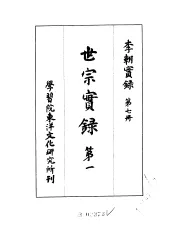 李朝實錄 第七冊
世宗實錄 第一
學習院東洋文化研究所刊